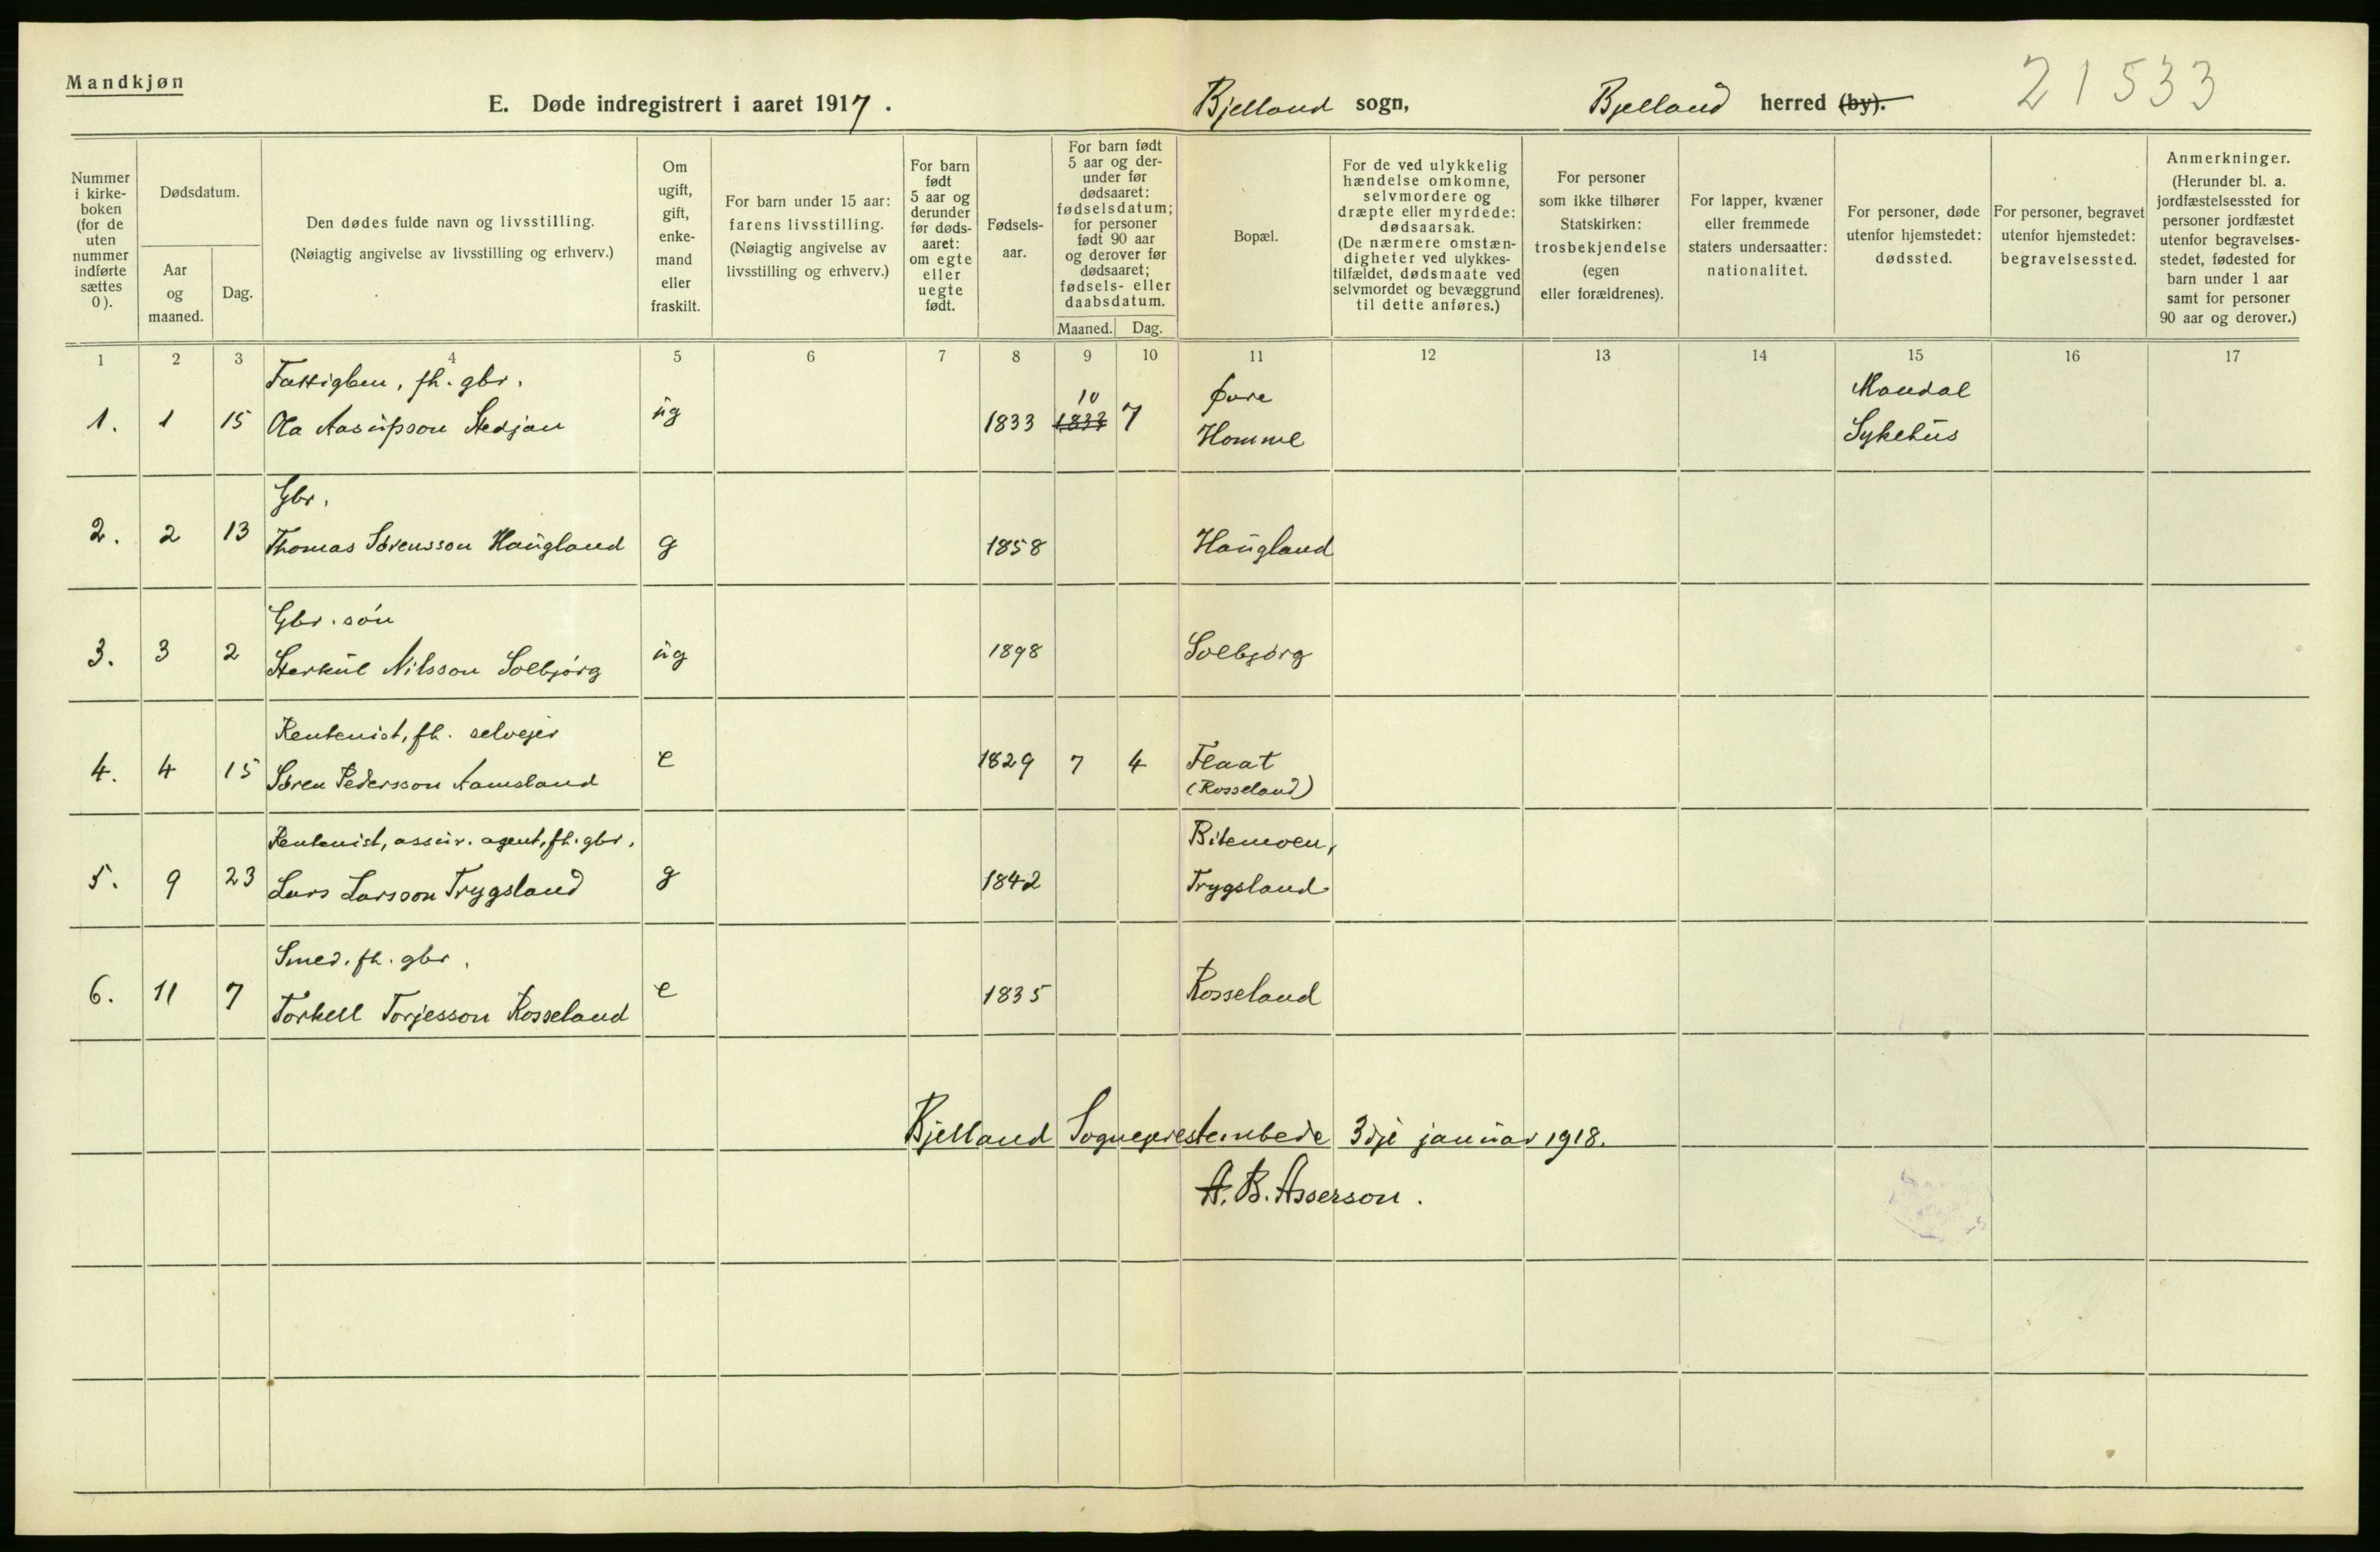 Mandkjøn
E. Døde indregistrert i aaret 1917.
Bjelland sogn,
Bjelland herred (by).
21533
Nummer
i kirke-
boken
(for de
uten
nummer
indførte
sættes
0).
Dødsdatum.
Aar
og
maaned.
Dag.
Den dødes fulde navn og livsstilling.
(Nøiagtig angivelse av livsstilling og erhverv.)
Om
ugift,
gift,
enke-
mand
eller
fraskilt.
For barn under 15 aar:
farens livsstilling.
(Nøiagtig angivelse av
livsstilling og erhverv.)
For barn
født
5 aar og
derunder
før døds-
aaret:
om egte
eller
uegte
født.
Fødsels-
aar.
For barn født
5 aar og der-
under før
dødsaaret:
fødselsdatum;
for personer
født 90 aar
og derover før
dødsaaret;
fødsels- eller
daabsdatum.
Maaned.
Dag.
Bopæl.
For de ved ulykkelig
hændelse omkomne,
selvmordere og
dræpte eller myrdede:
dødsaarsak.
(De nærmere omstæn-
digheter ved ulykkes-
tilfældet, dødsmaate ved
selvmordet og bevæggrund
til dette anføres.)
For personer
som ikke tilhører
Statskirken:
trosbekjendelse
(egen
eller forældrenes).
For lapper, kvæner
eller fremmede
staters undersaatter:
nationalitet.
For personer, døde
utenfor hjemstedet:
dødssted.
For personer, begravet
utenfor hjemstedet:
begravelsessted.
Anmerkninger.
(Herunder bl. a.
jordfæstelsessted for
personer jordfæstet
utenfor begravelses-
stedet, fødested for
barn under 1 aar
samt for personer
90 aar og derover.)
1 2 3 4 5 6 7 8 9 10 11 12 13 14 15 16 17
Fattiglem, fh. gbr. 10 Øvre Mandal
1. 1 15 Ola Aasulfsson Stedjan ug 1833 1833 7 Homme Sykehus
Gbr.
2. 2 13 Thomas Sørensson Haugland g 1858 Haugland
Gbr. søn
3. 3 2 Sterkul Nilsson Solbjørg ug 1898 Solbjørg
Rentenist, fh. selvejer
4. 4 15 Søren Pedersson Aamsland e 1829 7 4 Flaat
(Rosseland)
Rentenist, assur. agent, fh. gbr. Bitemoen,
5. 9 23 Lars Larsson Trygsland g 1842 Trygsland
Smed, fh. gbr.
6. 11 7 Torkell Torjesson Rosseland e 1835 Rosseland
Bjelland Sogneprestembede 3dje januar 1918.
A. B. Asserson.